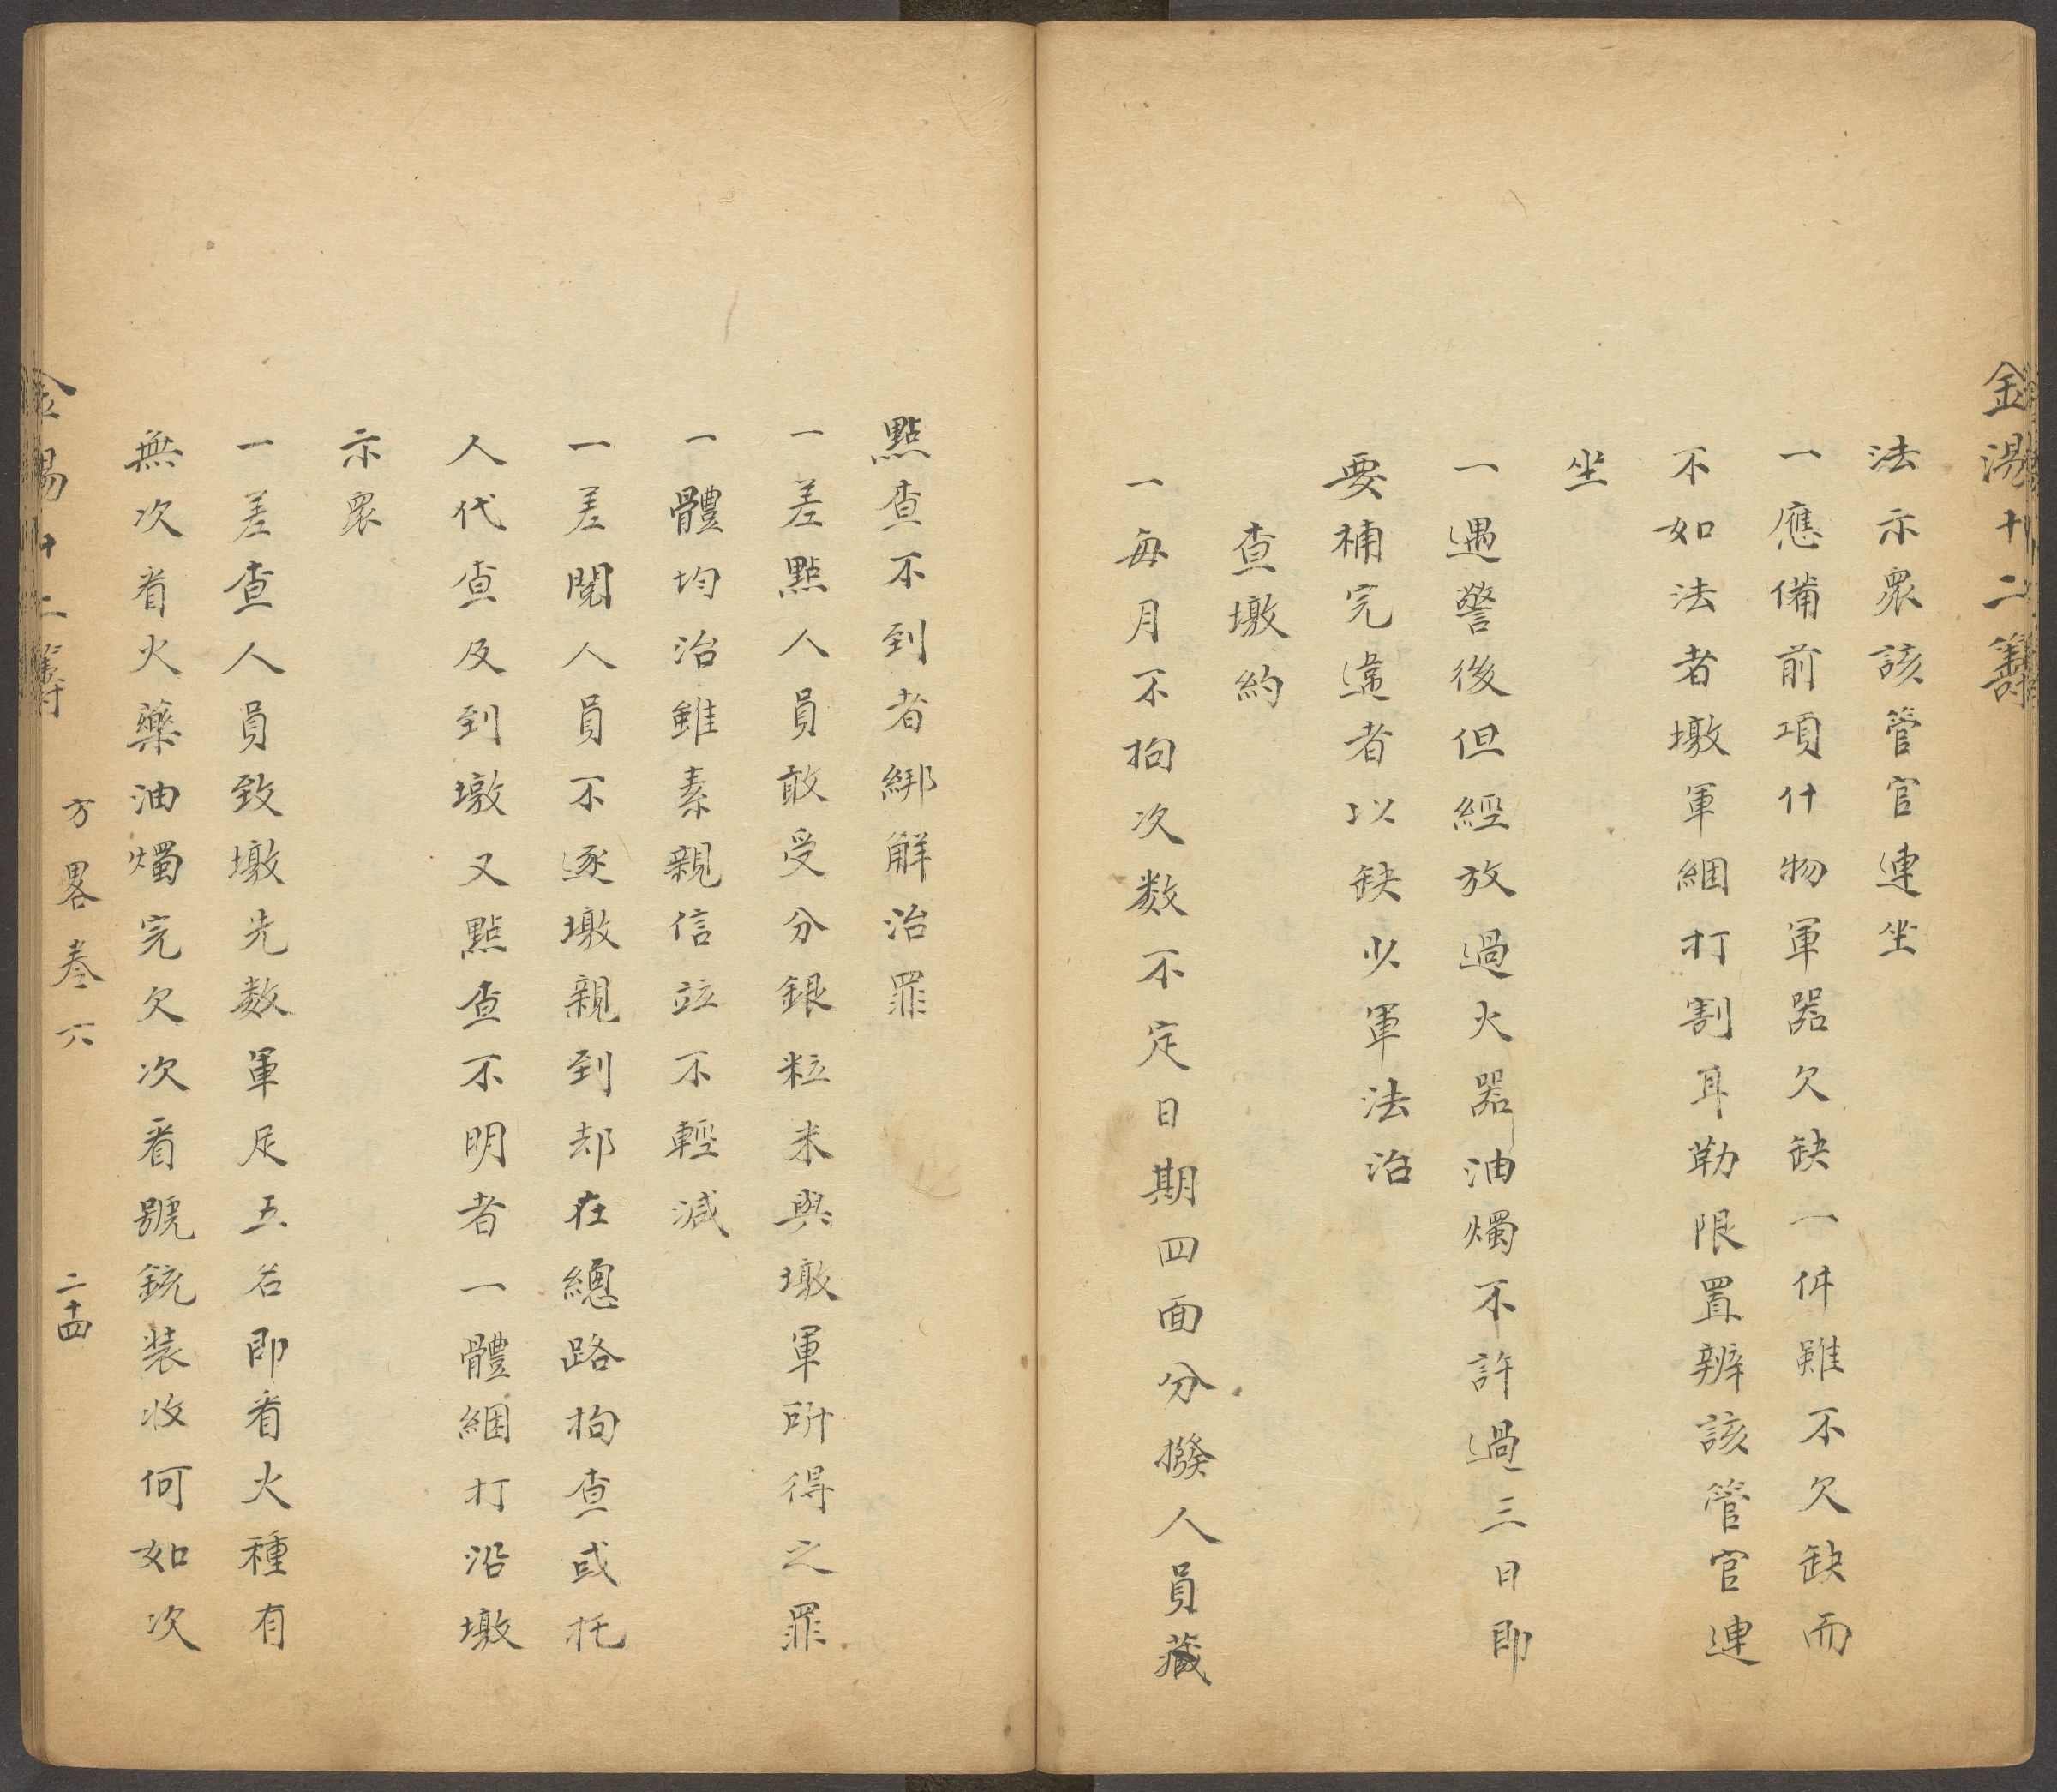 金湯十二籌
法示眾該管官連坐
一應備前項什物軍器欠缺一件雖不欠缺而
不如法者墩軍綑打割耳勒限置辦該管官連
坐
一遇警後但經放過火器油燭不許過三日即
要補完違者以缺少軍法治
查墩約
一每月不拘次数不定日期四面分撥人員藏
點查不到者綁解治罪
一差點人員敢受分銀粒米與墩軍所得之罪
一體均治雖素親信竝不輕減
一差閱人員不逐墩親到却在總路拘查或托
人代查及到墩又點查不明者一體綑打沿墩
示眾
一差查人員致墩先数軍足五名即看火種有
無次看火藥油燭完欠次看號銃装收何如次
金湯十二籌
方畧卷六
二十四